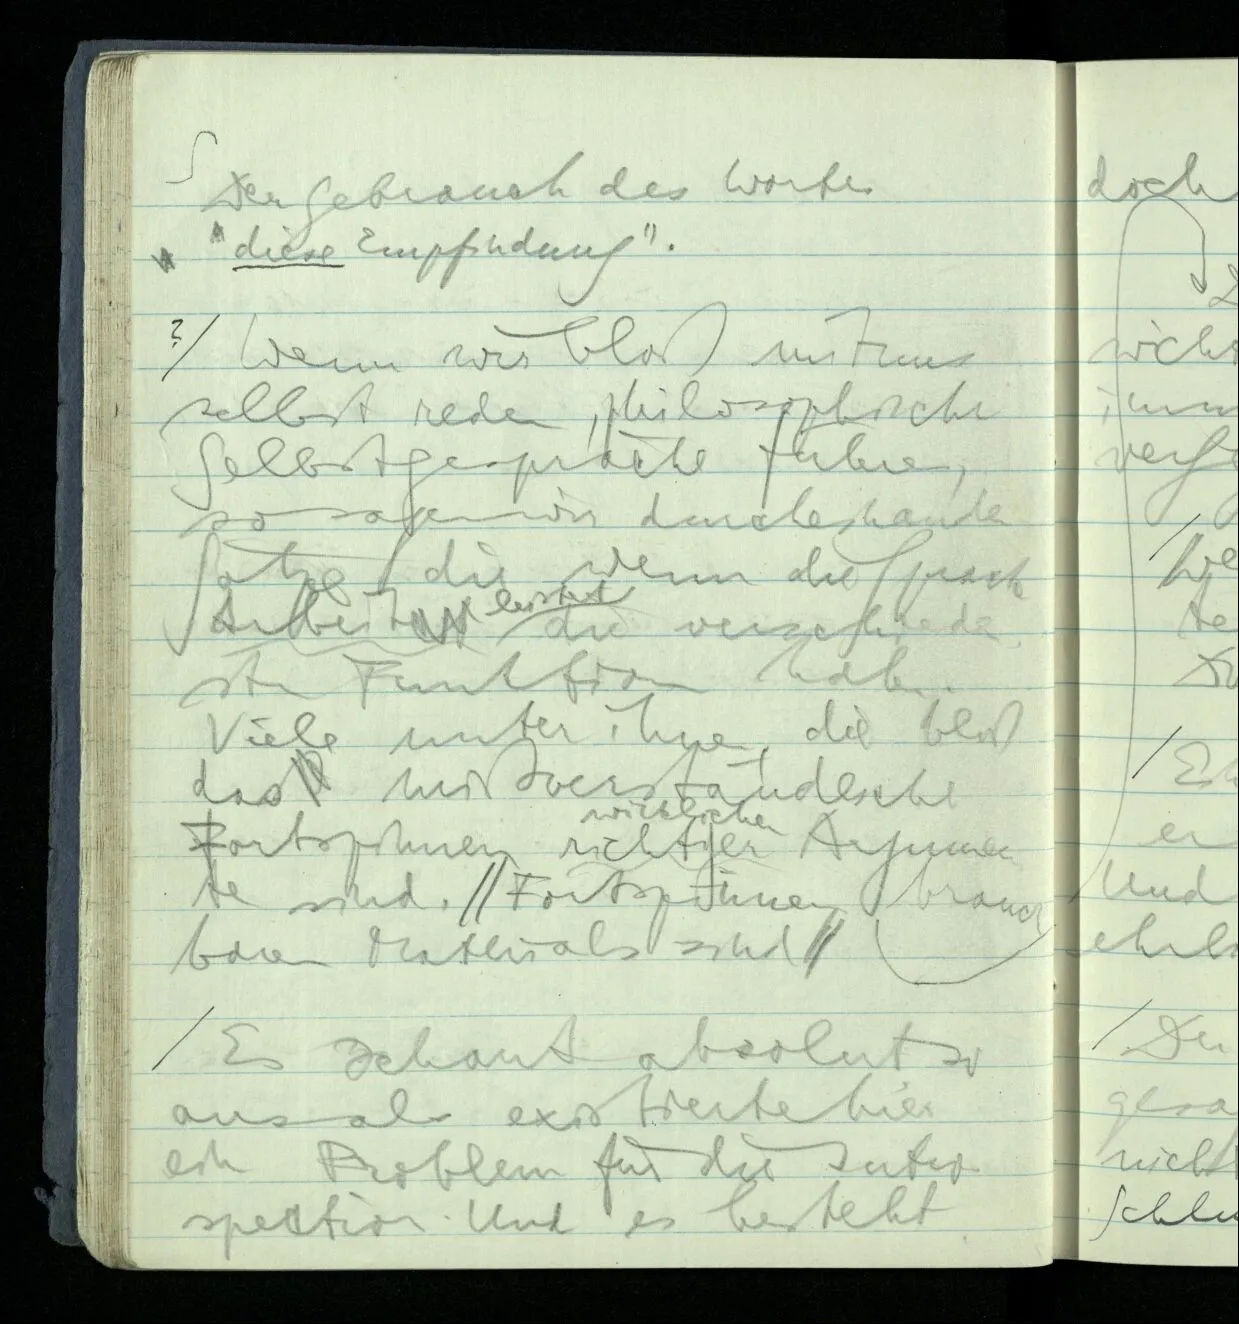 ∫ Der Gebrauch des Wortes
"diese Empfindung".
?/ Wenn wir bloß mit uns
selbst reden, philosophische
Selbstgespräche führen,
so sagen wir
Sätze die wenn die Sprache
Arbeit leistet die verschieden
ste Funktion haben.
Viele unter ihnen, die bloß
das mißverständliche
Fortspinnen richtiger wirklicher Argumen
te sind. // Fortspinnen brauch
baren Materials sind //
/ Es schaut absolut so
aus als existierte hier
ein Problem für die Intro
spektion. Und es besteht
doch
Und
/ Der
nicht